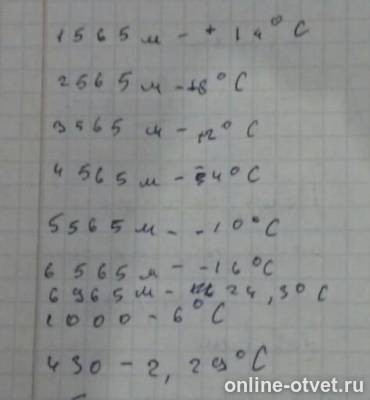 1565 м - +14°C
2565 м - +8°C
3565 м - +2°C
4565 м - -4°C
5565 м - -10°C
6565 м - -16°C
6965 м - 24,3°C
1000 - 6°C
430 - 2,29°C
online-otvet.ru